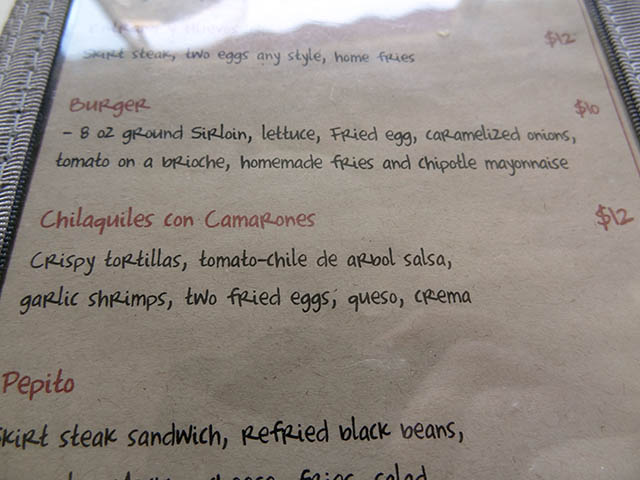 $12
Skirt steak, two eggs any style, home fries
Burger $10
- 8 oz ground Sirloin, lettuce, Fried egg, caramelized onions,
tomato on a brioche, homemade fries and chipotle mayonnaise
Chilaquiles con Camarones $12
Crispy tortillas, tomato-chile de arbol salsa,
garlic shrimps, two fried eggs, queso, crema
Pepito
Skirt steak sandwich, refried black beans,
cheese, fries, salad